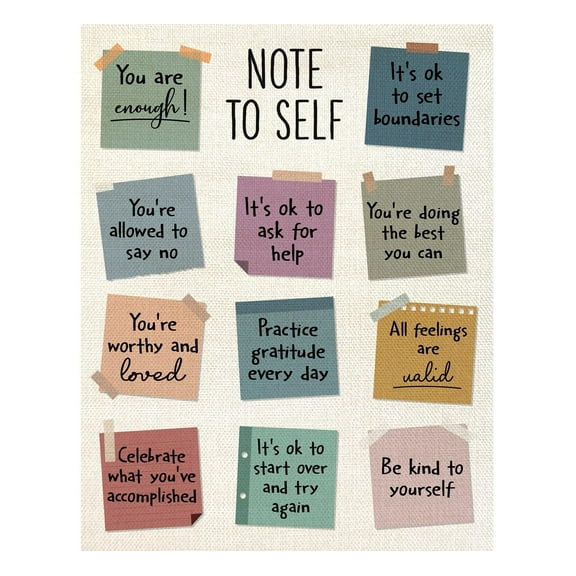 You are
enough!
NOTE
TO SELF
It's ok
to set
boundaries
You're
allowed to
say no
It's ok to
ask for
help
You're doing
the best
you can
You're
worthy and
loved
Practice
gratitude
every day
All feelings
are
valid
Celebrate
what you've
accomplished
It's ok to
start over
and try
again
Be kind to
yourself